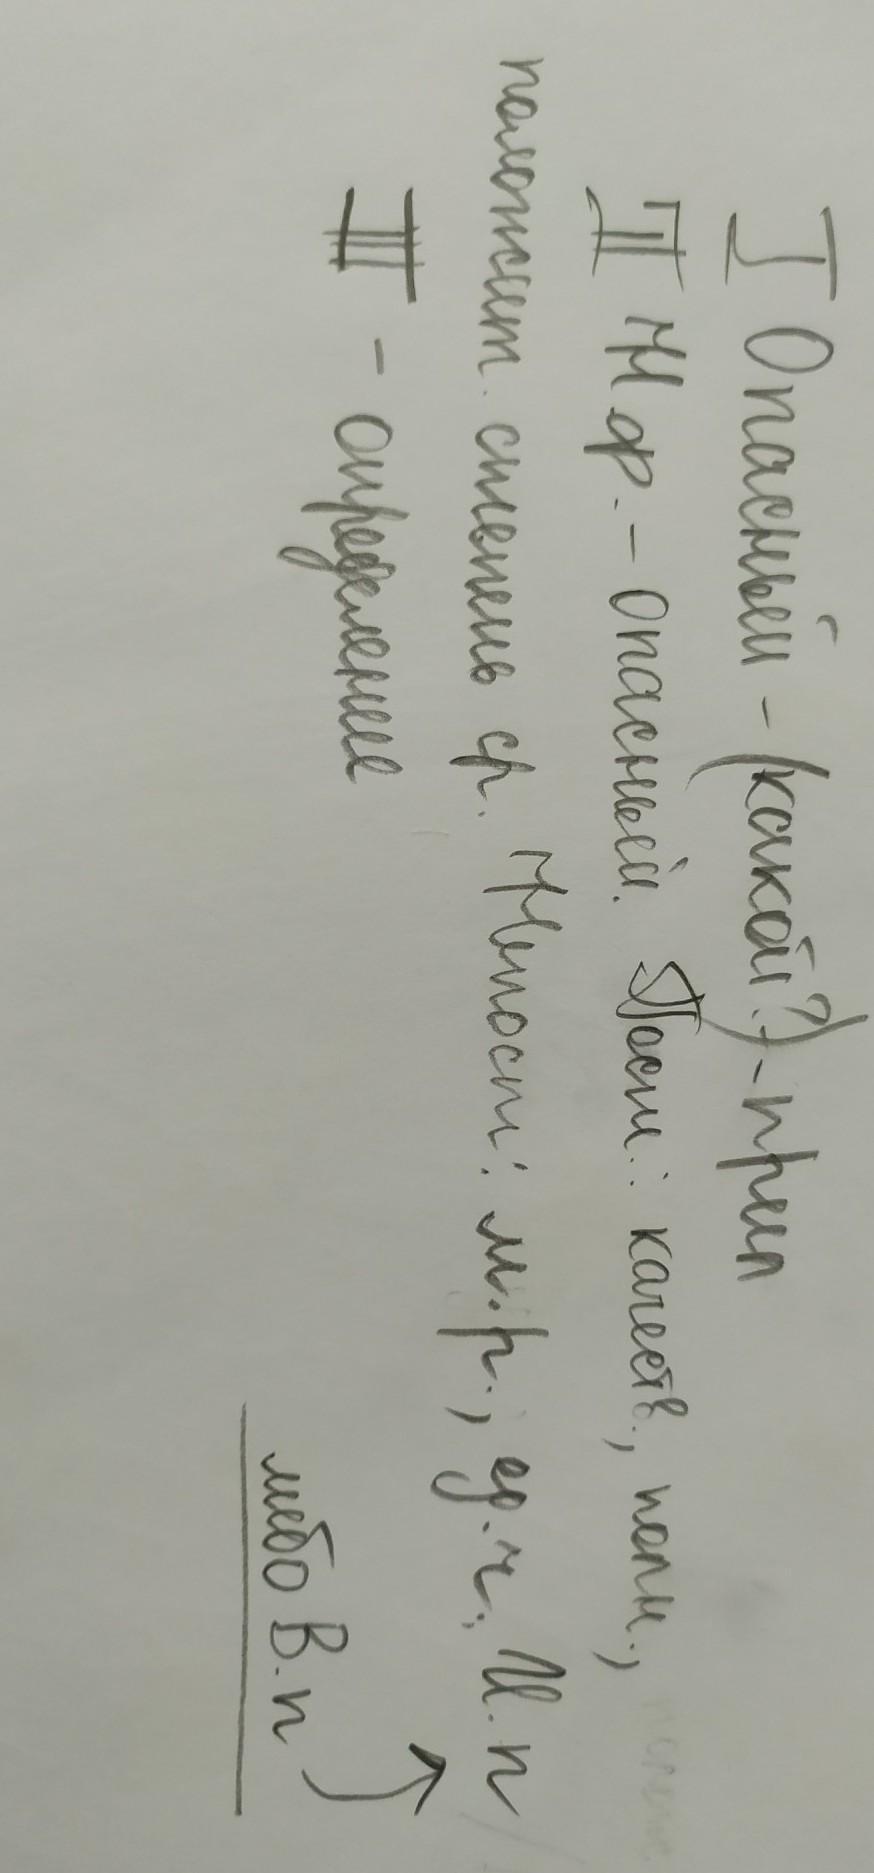 I Опасный - (какой?) - прил
II Н.ф. - Опасный. Пост.: качеств., полн.,
положит. степень ср. Непост: м.р., ед.ч, И.п
III - определение
либо В.п